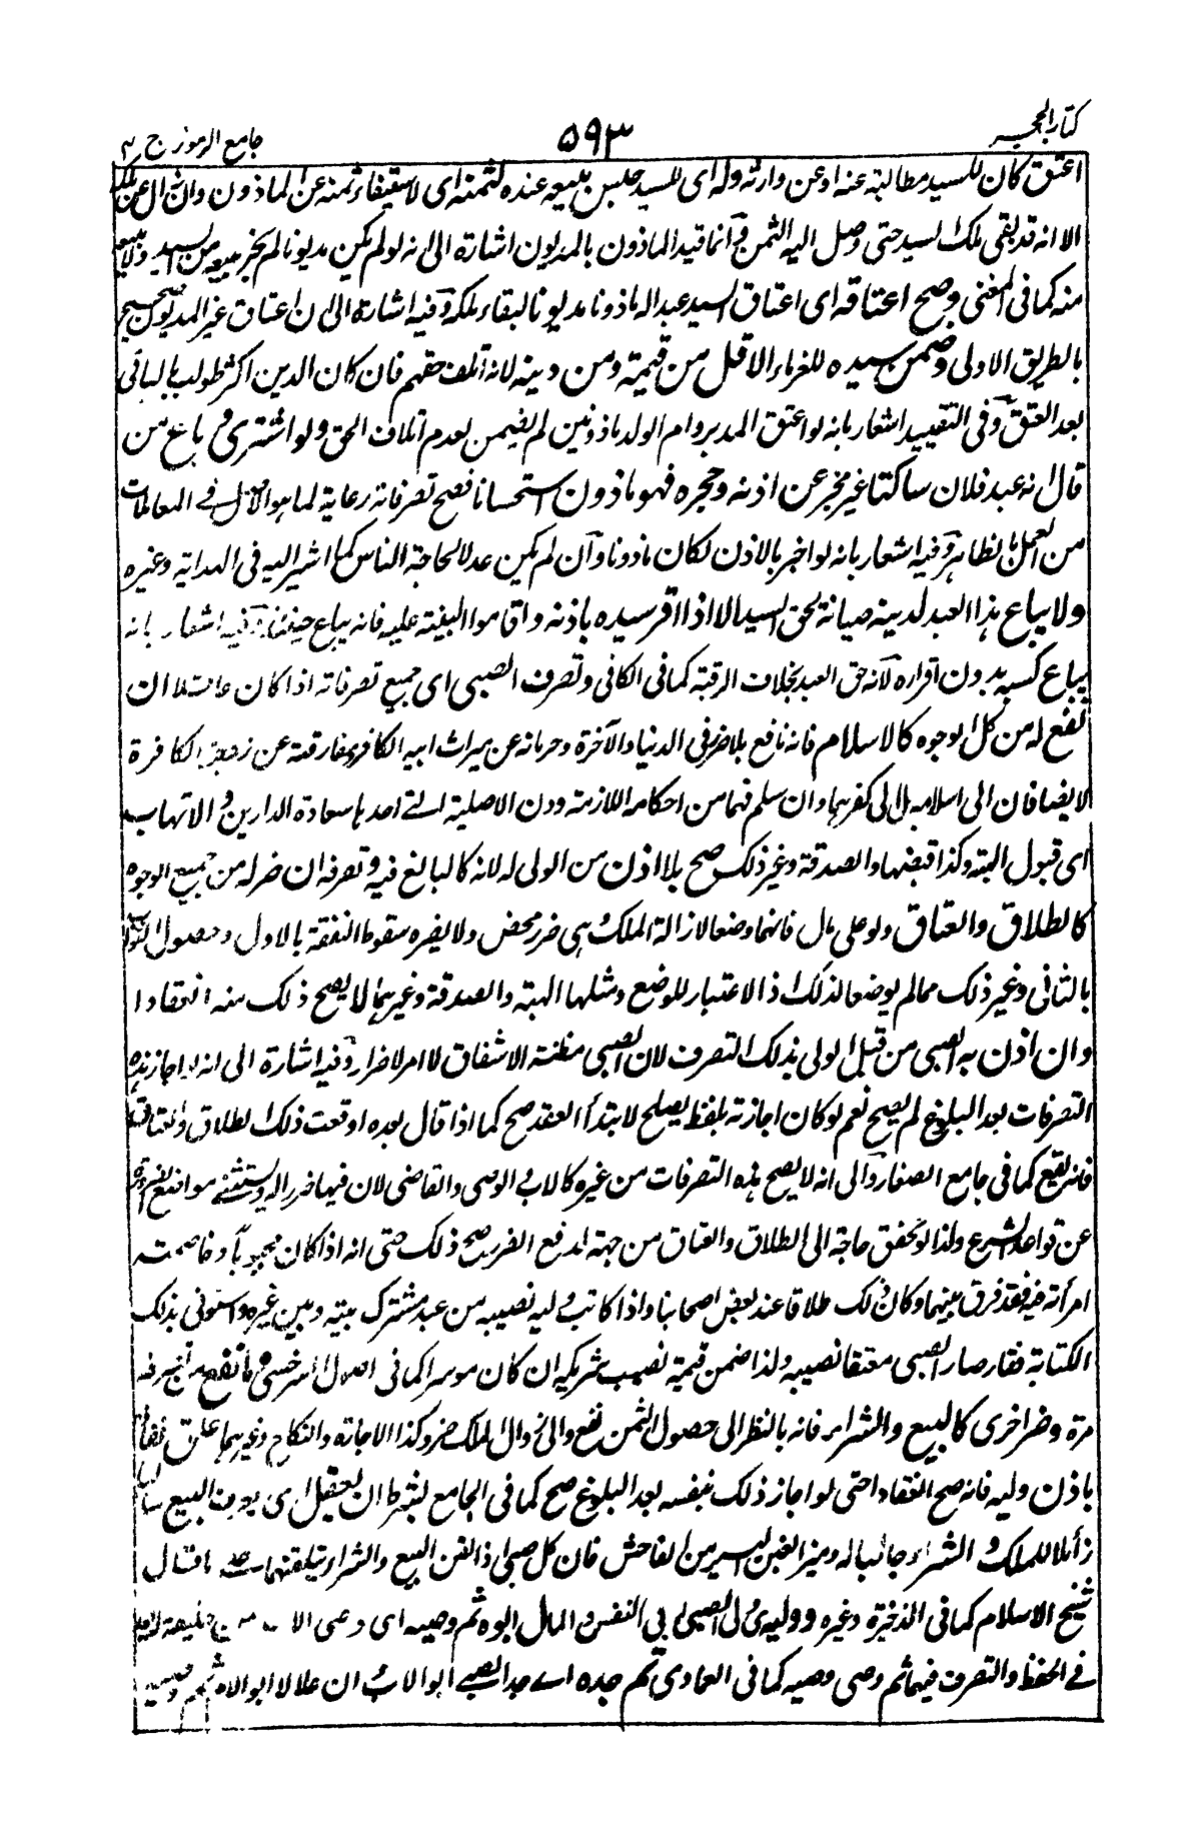 كتاب الحجر
٥٩٣
جامع الرموز ج ٣
اعتق كان للسيد مطالبة عنه او عن وارثه وله اى للسيد حبس مبيعه عنده لثمنه اى لاستيفاء ثمنه عن الماذون وان زال عن ملكه
الا انه قد بقى ملك السيد حتى وصل اليه الثمن وانما قيد الماذون بالمديون اشارة الى انه لو لم يكن مديونا لم يجز بيعه من السيد ولا بيع
منه كما فى المغنى وصح اعتاقه اى اعتاق السيد عبدا له ماذونا مديونا لبقاء ملكه وفيه اشارة الى ان اعتاق غير المديون صحيح
بالطريق الاولى وضمن سيده للغرماء الاقل من قيمته ومن دينه لانه اتلف حقهم فان كان الدين اكثر طولب بالباقى
بعد العتق وفى التقييد اشعار بانه لو اعتق المدبر وام الولد ماذونين لم يضمن لعدم اتلاف الحق ولو اشترى و باع من
قال انه عبد فلان ساكتا غير مخبر عن اذنه وحجره فهو ماذون استحسانا فصح تصرفاته رعاية لما هو الاصل فى المعاملات
من العمل بالظاهر وفيه اشعار بانه لو اخبر بالاذن لكان ماذونا وان لم يكن عدلا لحاجة الناس كما اشير اليه فى الهداية وغيره
ولا يباع هذا العبد لدينه صيانة لحق السيد الا اذا اقر سيده باذنه او اقاموا البينة عليه فانه يباع حينئذ وفيه اشعار بانه
يباع كسبه بدون اقراره لانه حق العبد بخلاف الرقبة كما فى الكافى وتصرف الصبى اى جميع تصرفاته اذا كان عاقلا ان
نفع له من كل الوجوه كالاسلام فانه نافع بلا ضرر فى الدنيا والآخرة وحرمانه عن ميراث ابيه الكافر ومفارقته عن زوجته الكافرة
لا يضافان الى اسلامه بل الى كفرهما وان سلم فهما من احكامه اللازمة دون الاصلية التى احدها سعادة الدارين والاتهاب
اى قبول الهبة وكذا قبضها والصدقة وغير ذلك صح بلا اذن من الولى له لانه كالبالغ فيه وتصرفه ان ضر له من جميع الوجوه
كالطلاق والعتاق ولو على مال فانهما وضعا لازالة الملك وهى ضرر محض ولا يضره سقوط النفقة بالاول وحصول الثواب
بالثانى وغير ذلك مما لم يوضعا لذلك اذ الاعتبار للوضع ومثلهما الهبة والصدقة وغيرهما لا يصح ذلك منه انعقادا
وان اذن به الصبى من قبل الولى بذلك التصرف لان الصبى مظنة الاشفاق لا الاضرار وفيه اشارة الى انه لو اجاز هذه
التصرفات بعد البلوغ لم يصح نعم لو كان اجازته بلفظ يصلح لابتداء العقد صح كما اذا قال بعده اوقعت ذلك الطلاق والعتاق
فانه يقع كما فى جامع الصغار والى انه لا يصح هذه التصرفات من غيره كالاب والوصى والقاضى لان فيها ضررا له ويستثنى مواضع
عن قواعد الشرع ولذا لو تحقق حاجة الى الطلاق والعتاق من جهة لدفع الضرر صح ذلك حتى انه اذا كان مجبوبا وخاصمت
امرأته فيه فقد فرق بينهما وكان ذلك طلاقا عند بعض اصحابنا واذا كاتب وليه نصيبه من عبد مشترك بينه وبين غيره واستوفى بذلك
الكتابة فقد صار الصبى معتقا نصيبه ولذا ضمن قيمة نصيب شريكه ان كان موسرا كما فى اصول السرخسى وما نفع
مرة وضر اخرى كالبيع والشراء فانه بالنظر الى حصول الثمن نفع والى زوال الملك ضر وكذا الاجارة والنكاح وغيرهما علق
باذن وليه فانه صح انعقادا حتى لو اجاز ذلك بنفسه بعد البلوغ صح كما فى الجامع بشرط ان يعقل اى يعرف البيع سالبا
زائلا للملك والشراء جالبا له ويميز الغبن اليسير من الفاحش فان كل صبى اذا لقن البيع والشراء يتلقنهما قال
شيخ الاسلام كما فى الذخيرة وغيره ووليه اى ولى الصبى فى النفس والمال ابوه ثم وصيه اى وصى الاب
فى الحفظ والتصرف فيهما ثم وصى وصيه كما فى العمادى ثم جده اى جد الصبى ابو الاب ان علا لا ابو الام ثم وصيه